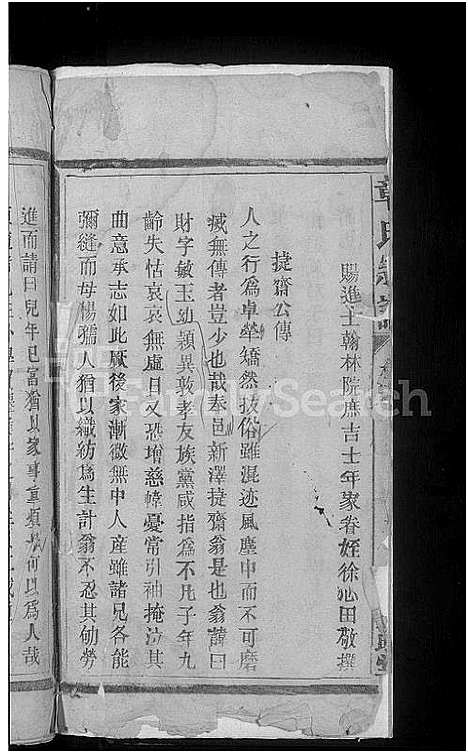 章氏宗譜
賜進士翰林院庶吉士年家眷姪徐心田敬撰
捷齋公傳
人之行爲卓犖矯然拔俗雖混迹風塵中而不可磨
滅無傳者豈少也哉奉邑新澤捷齋翁是也翁諱曰
財字敏玉幼穎異敦孝友族黨咸指爲不凡子年九
齡失怙哀哀無虛日又恐增慈幃憂常引袖掩泣其
曲意承志如此厥後家漸微無中人產雖諸兄各能
彌縫而母楊孺人猶以織紡爲生計翁不忍其劬勞
進而請曰兒年已富猶以家事重煩 何以爲人哉
FamilySearch